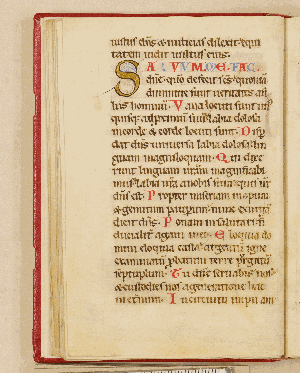 iustus dñs & iusticias dilexit equi
tatem uidit uultus eius.
SALVUM ME FAC
dñe qm̄ defecit scs̄ quoniā
diminute sunt ueritates a fi
liis hominū. Vana locuti sunt
ad proximū suū labia dolosa
in corde & corde locuti sunt. Disp
dat dñs uniuersa labia dolosa lin
guam magniloquam. Qui dixe
runt linguam nrām magnificabi
mus labia nrā a nobis sunt quis nr̄
dñs est. Propter miseriam inopum
& gemitum pauperum nunc exurgā
dicit dñs. Ponam in salutari
fiducialit agam in eo. Eloquia do
mini eloquia casta argentū igne
examinatū probatum terre purgatū
septuplum. Tu dñe seruabis nos
& custodies nos a generatione hac
in &ternum. In circuitu impii am